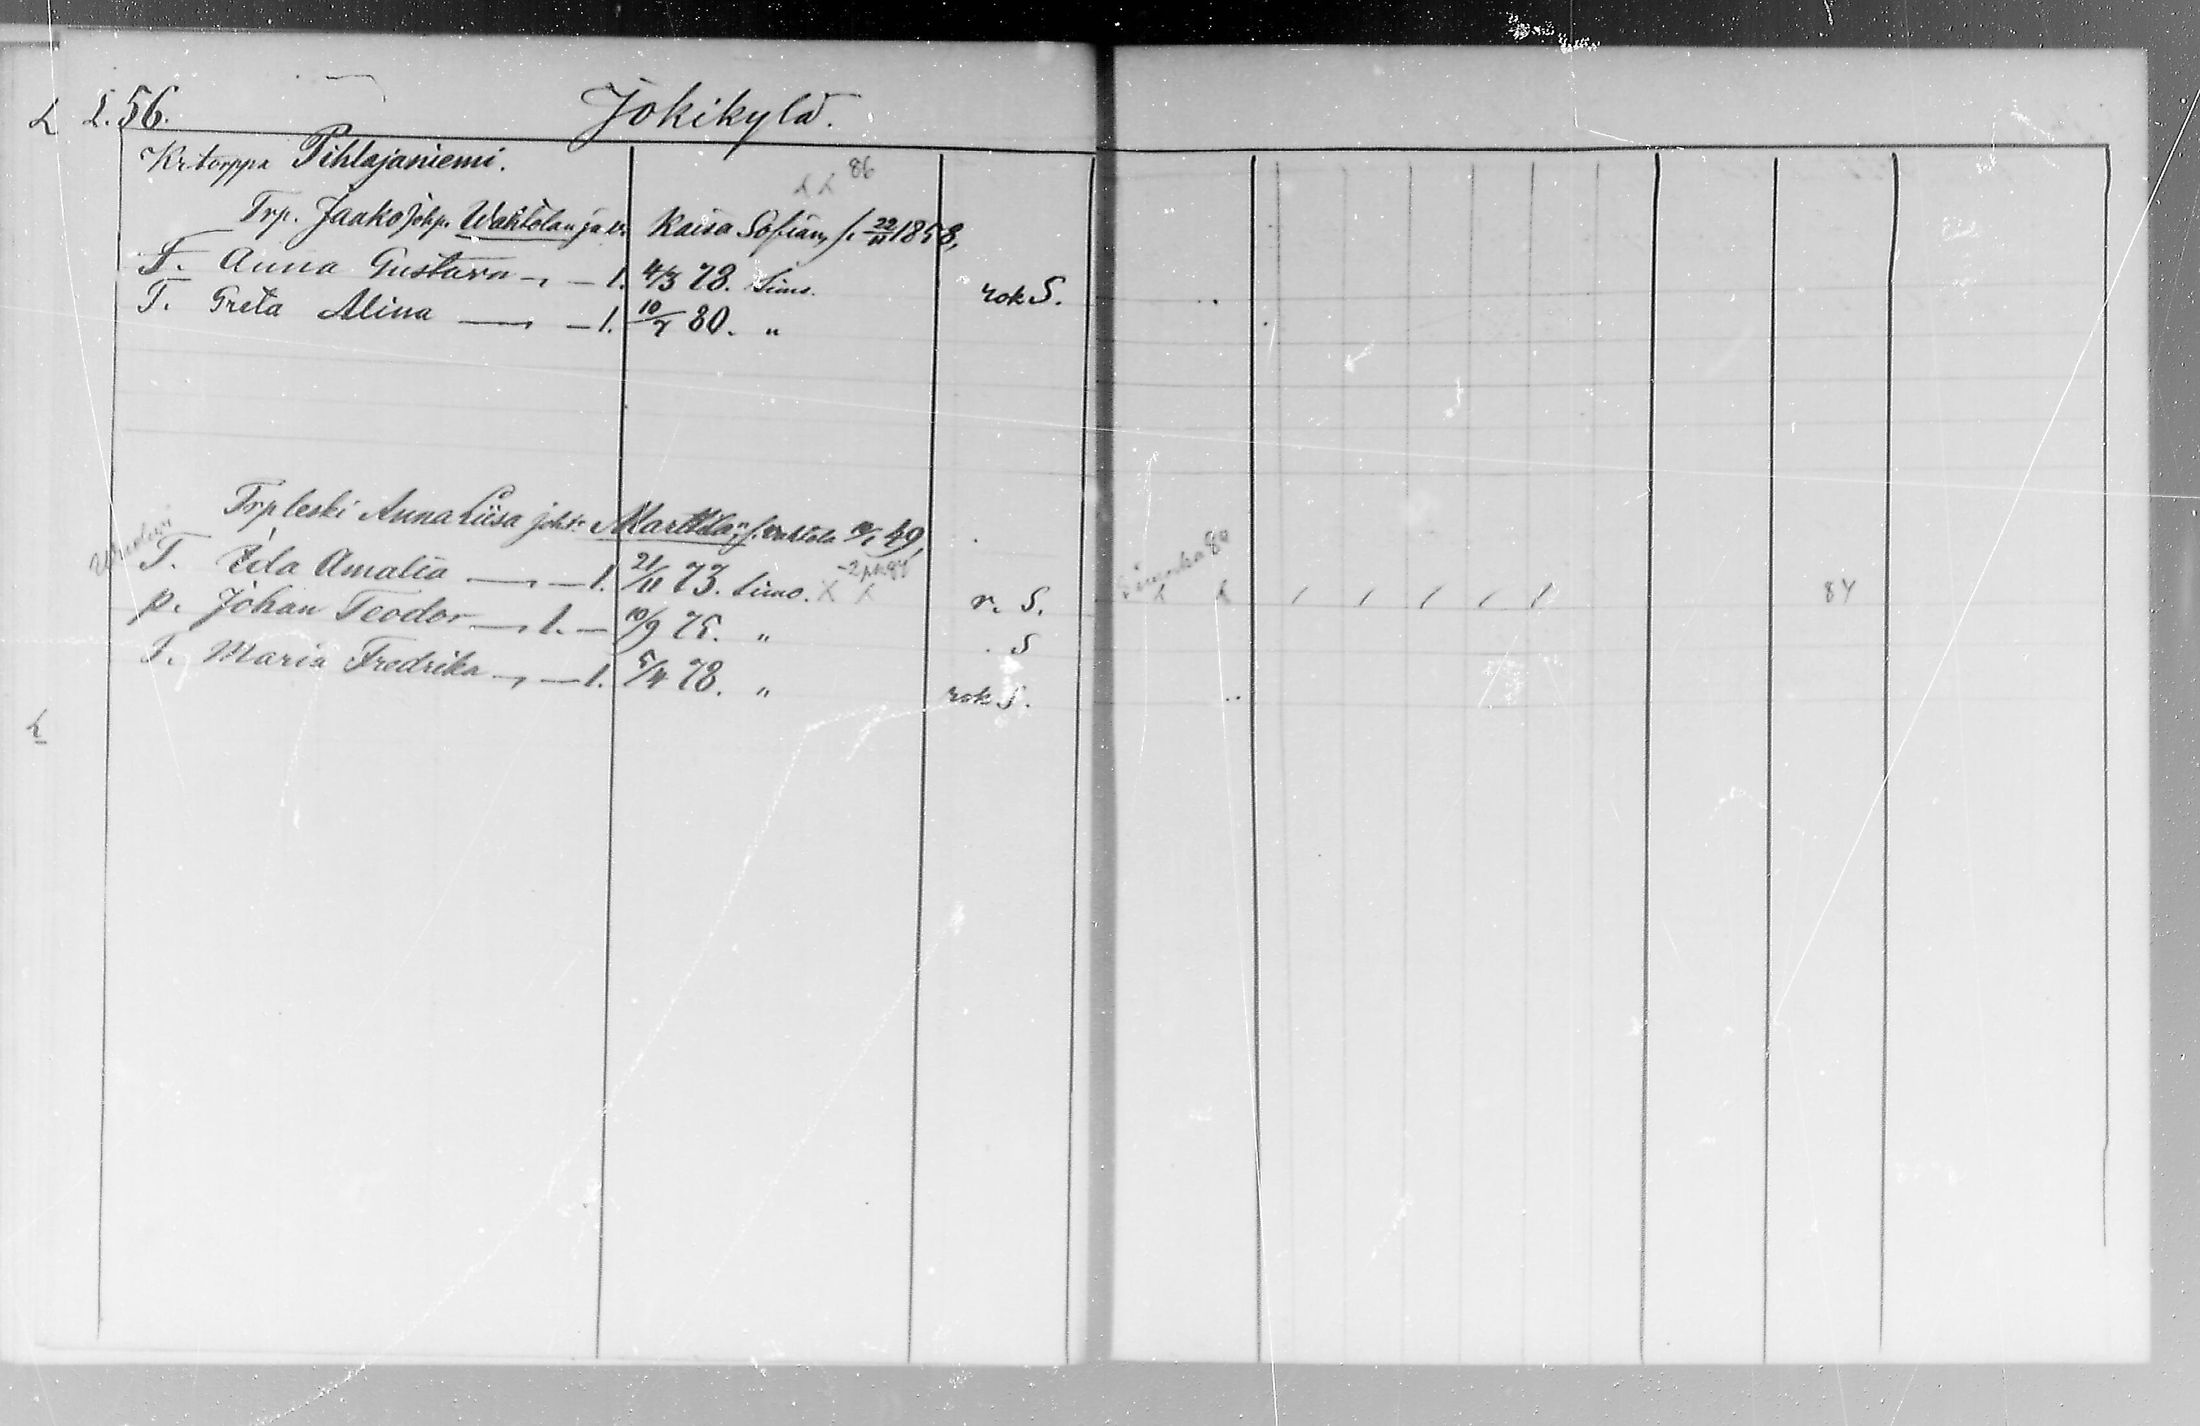 L. 56. Jokikylä.
Kr. torppa Pihlajaniemi.
86
Trp. Jaako Johp. Wahtolan ja v. Kaisa Sofian, s. 22/11 1858,
T. Anna Gustava —, — 1. 4/3 78. Simo. rok S.
T. Greta Alina —, — 1. 10/7 80. "
Trp leski Anna Liisa joht. Marttila, s. Wahtola 49,
T. Ida Amalia —, — 1. 21/11 73. Simo. X r. S. 84
p. Johan Teodor —, 1. — 10/9 75. " S
T. Maria Fredrika —, — 1. 5/4 78. " rok S.